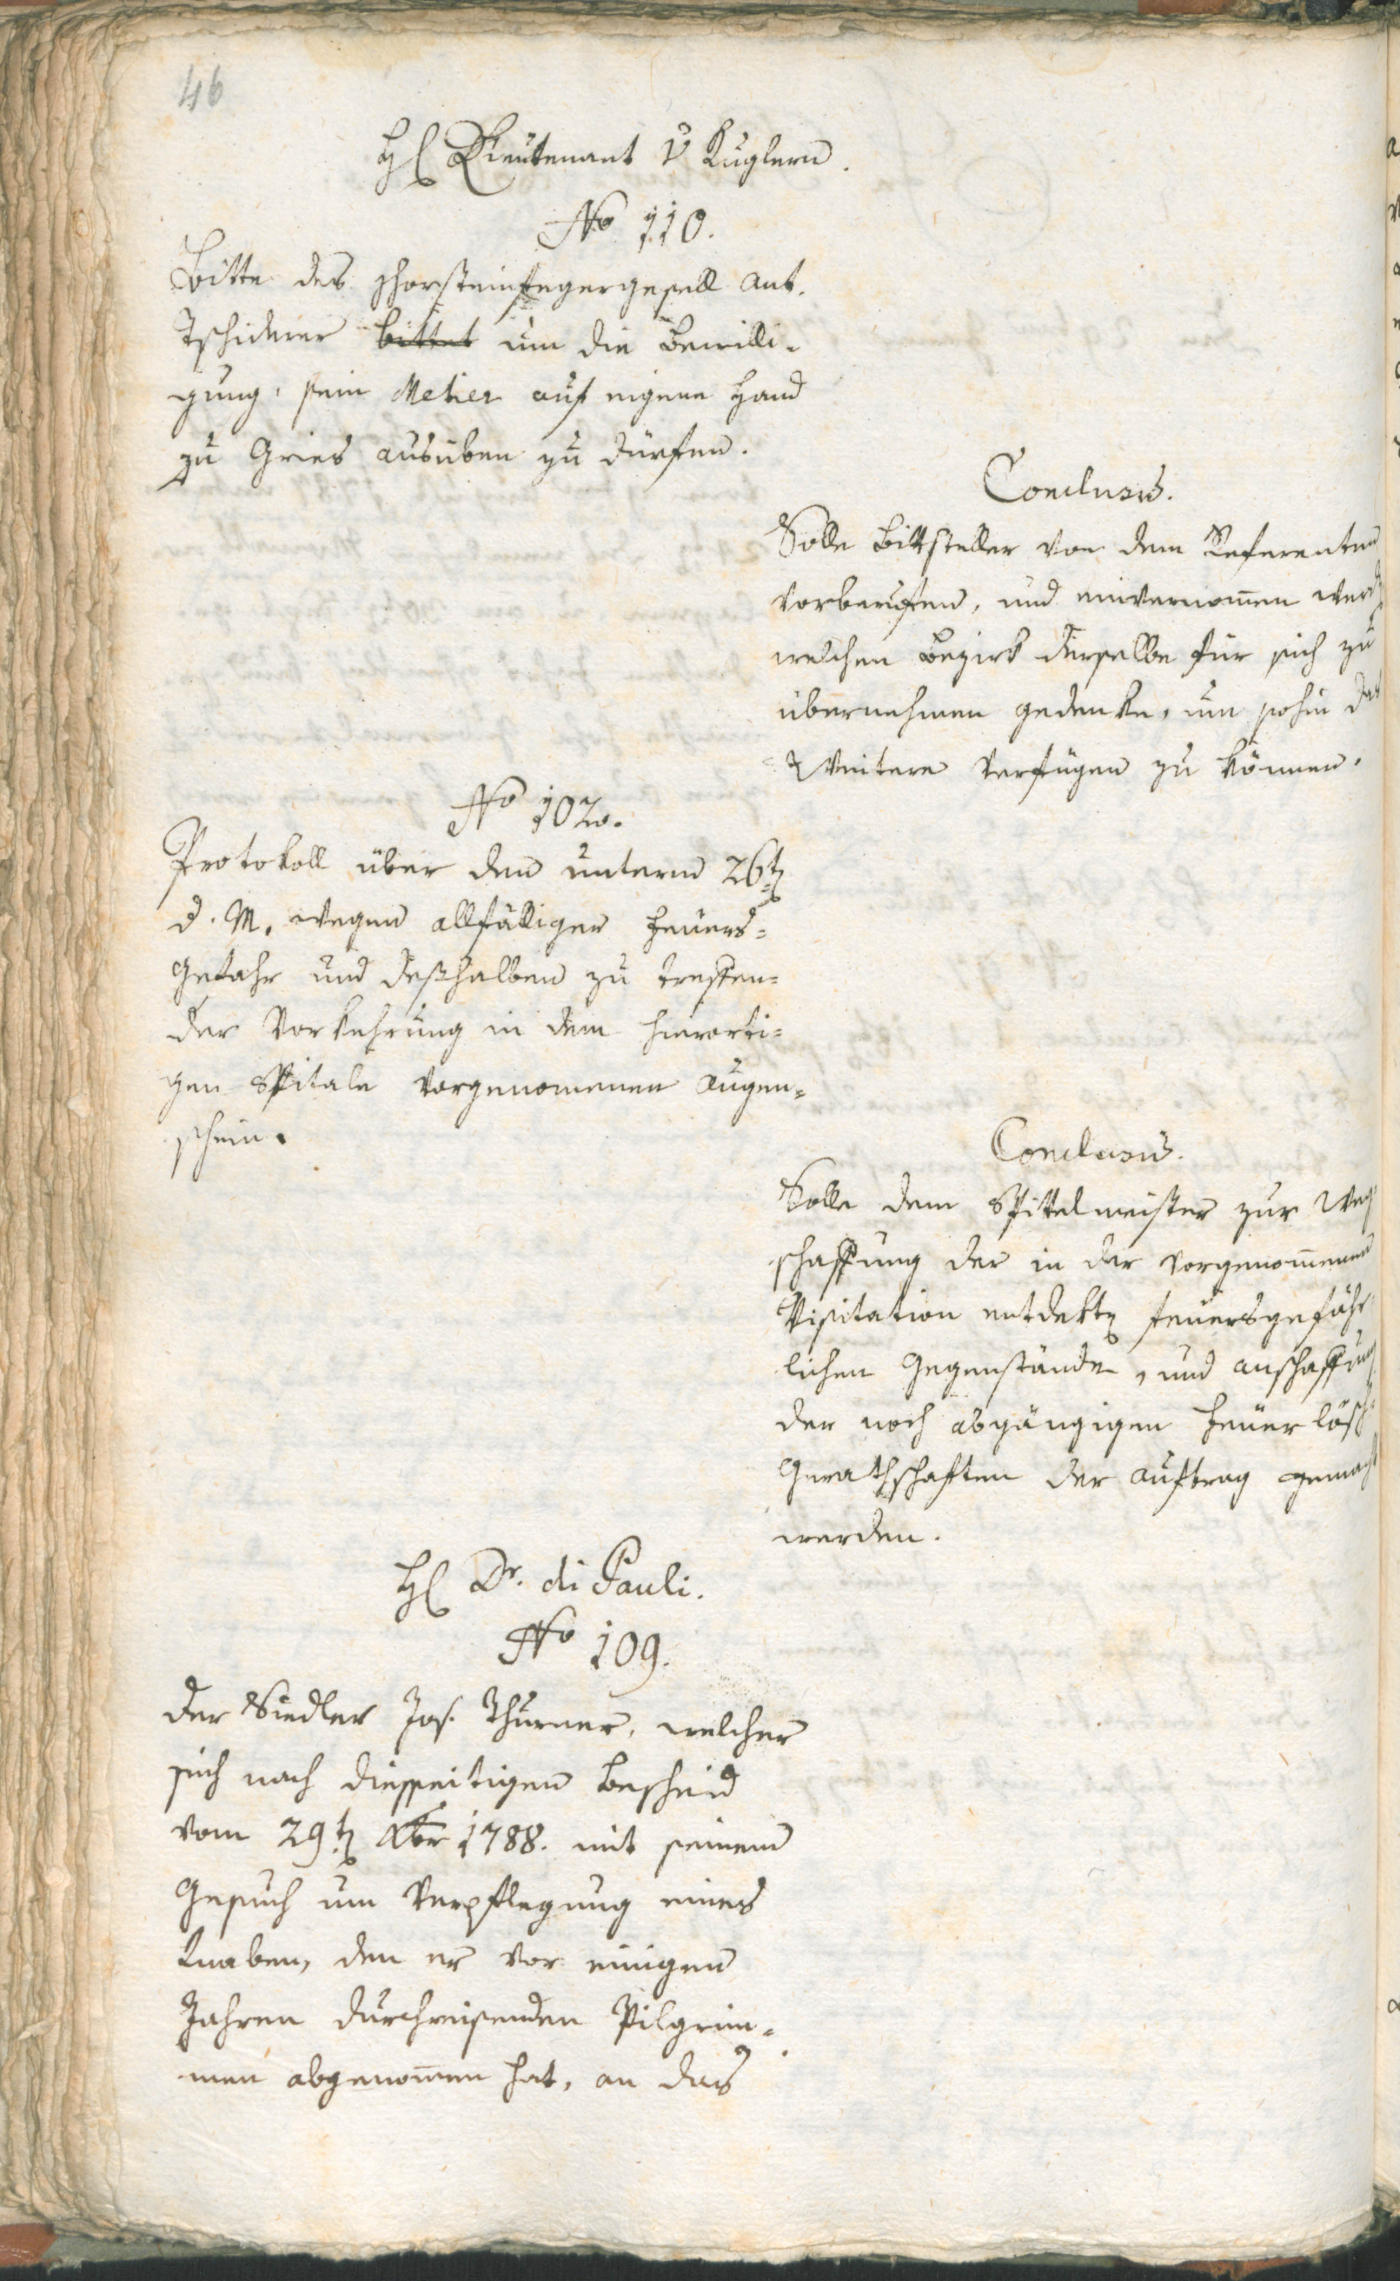 46
H Lieutenant v Kuglern.
No 110.
Bitte des Chorsteinfegergesell Ant.
Tschiderer bittet um die Bewilli-
gung, sein Metier auf eigene Hand
zu Gries ausüben zu dürfen.
Conclusū.
Solle Bittsteller von dem Referenten
vorberuffen, und einvernom̄en werd
welchen Bezirk derselbe für sich zu
übernehmen gedenke, um sohin das
Weitere verfügen zu können.
No 102.
Protokoll über den unterm 26t
d. M. wegen allfälliger Feuers-
Gefahr und deßhalben zu treffen-
der Vorkehrung in dem hierorti-
gen Spitale vorgenomenen Augen-
schein.
Conclusū.
Solle dem Spittelmeister zur Weg
schaffung der in der vorgenom̄enen
Visitation entdekt feuersgefähr
lichen Gegenstände, und Anschaffung
der noch abgängigen Feuer lösch
Gerathschaften der Auftrag gemacht
werden.
H Dr. di Pauli.
No 109.
Der Siedler Jos. Thurner, welcher
sich nach diesseitigen Bescheid
vom 29t Xbr 1788. mit seinem
Gesuch um Verpflegung eines
Knaben, den er vor einigen
Jahren durchreisenden Pilgrim-
men abgenom̄en hat, an das